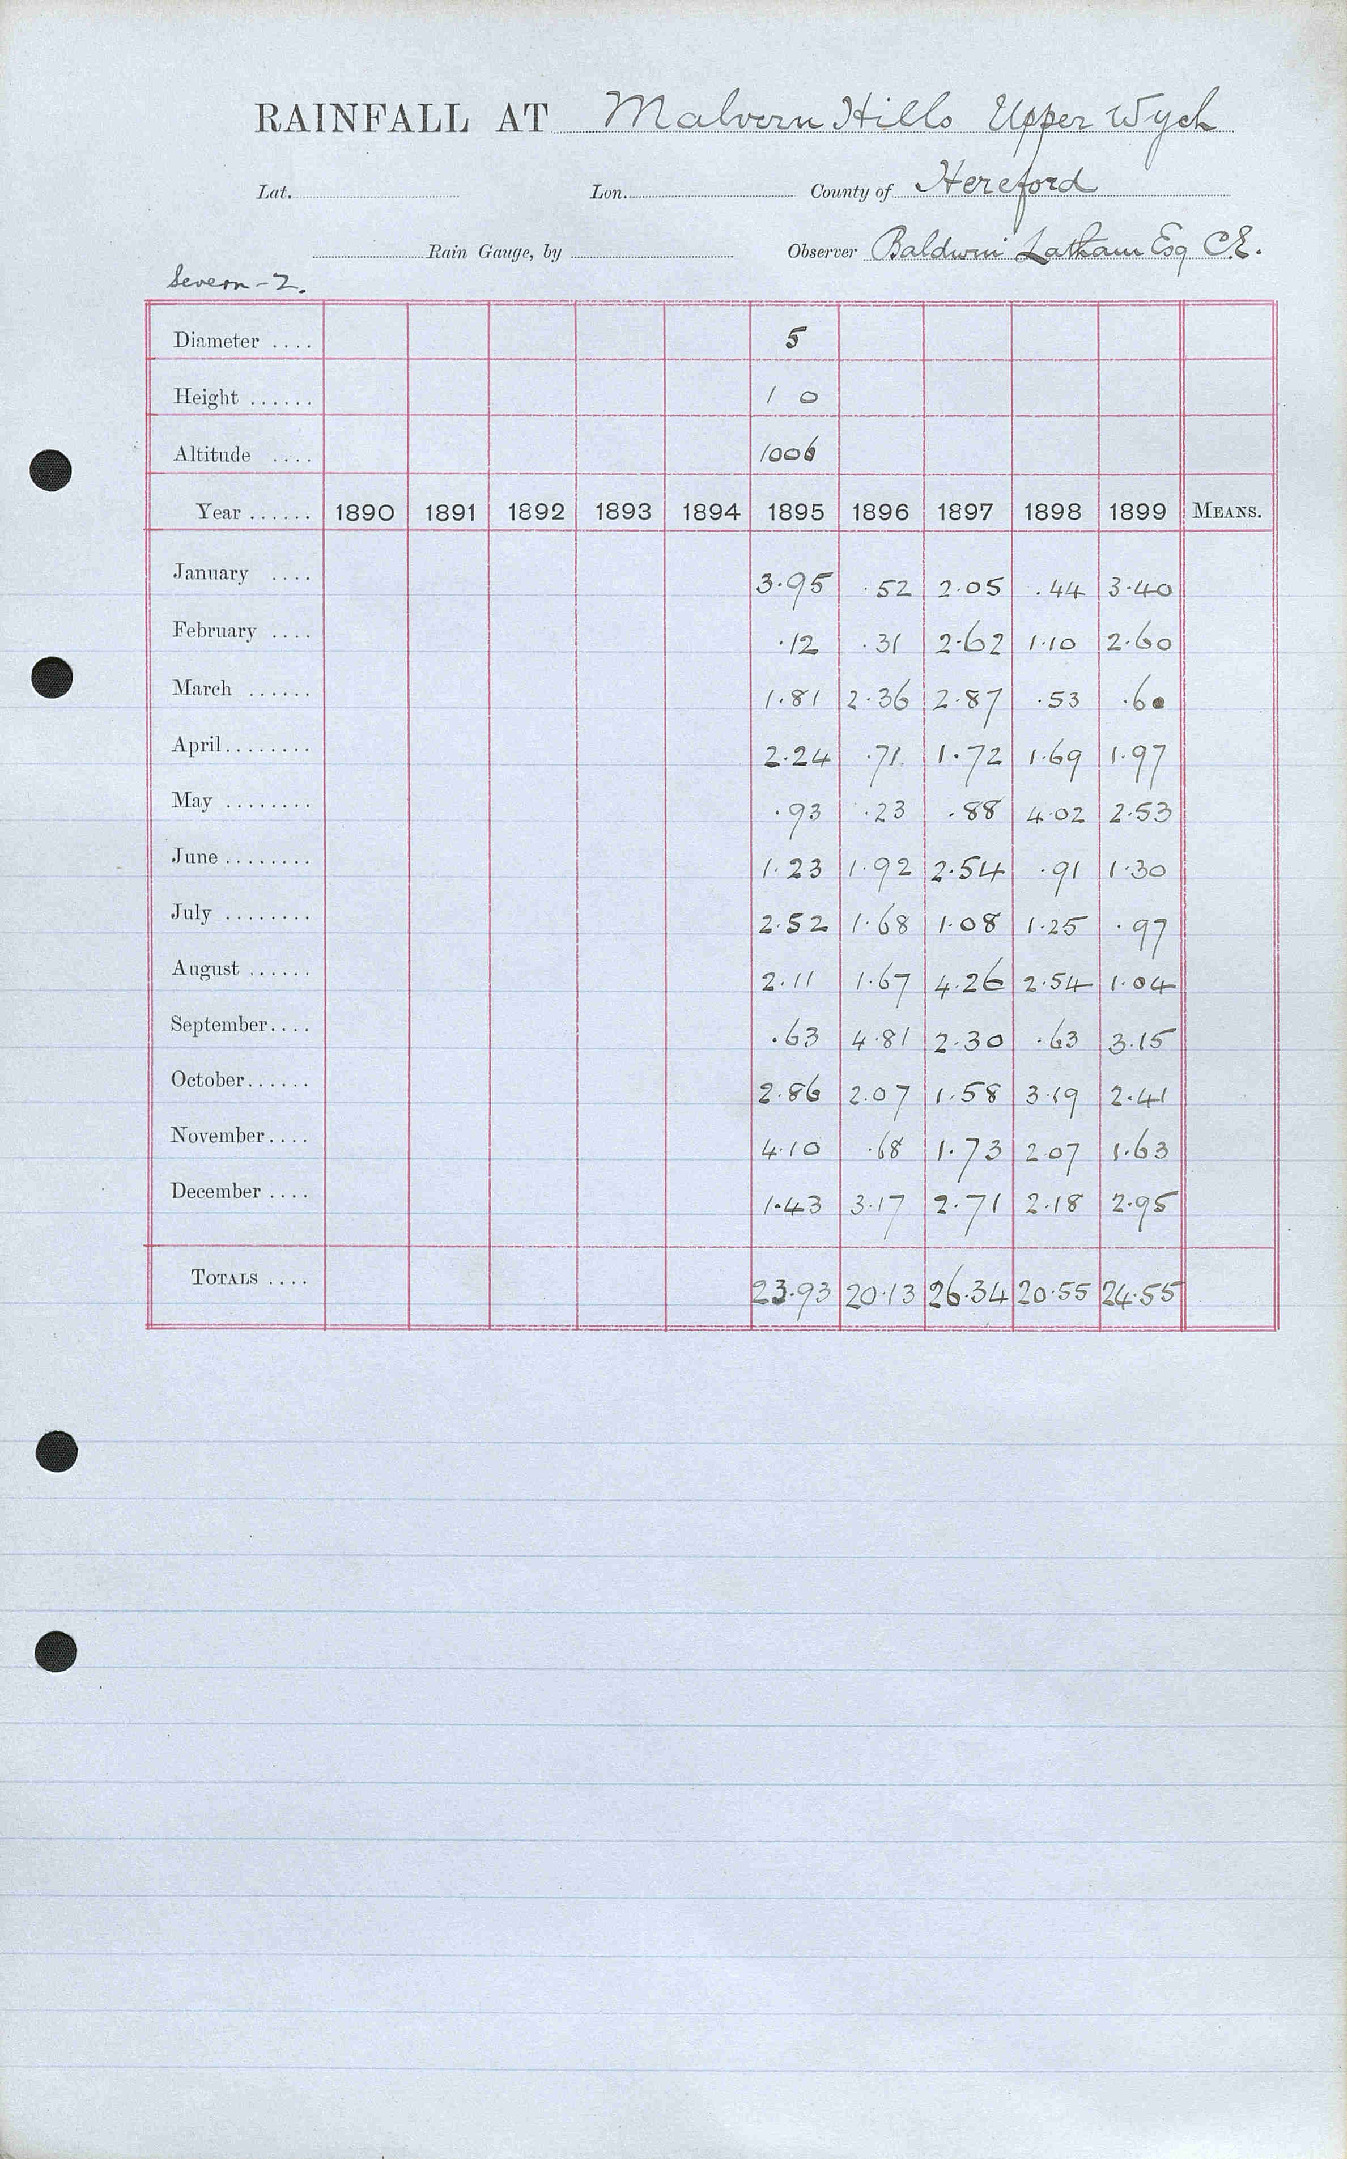 RAINFALL AT Malvern Hills Upper Wych
Lat. Lon. County of Hereford
Rain Gauge, by Observer Baldwin Latham Esq C.E.
Severn - 2.
Diameter .... 5
Height ...... 1 0
Altitude .... 1006
Year ...... 1890 1891 1892 1893 1894 1895 1896 1897 1898 1899 MEANS.
January .... 3.95 .52 2.05 .44 3.40
February .... .12 .31 2.62 1.10 2.60
March ...... 1.81 2.36 2.87 .53 .60
April ........ 2.24 .71 1.72 1.69 1.97
May ........ .93 .23 .88 4.02 2.53
June ........ 1.23 1.92 2.54 .91 1.30
July ........ 2.52 1.68 1.08 1.25 .97
August ...... 2.11 1.67 4.26 2.54 1.04
September .... .63 4.81 2.30 .63 3.15
October ...... 2.86 2.07 1.58 3.19 2.41
November .... 4.10 .68 1.73 2.07 1.63
December .... 1.43 3.17 2.71 2.18 2.95
TOTALS .... 23.93 20.13 26.34 20.55 24.55